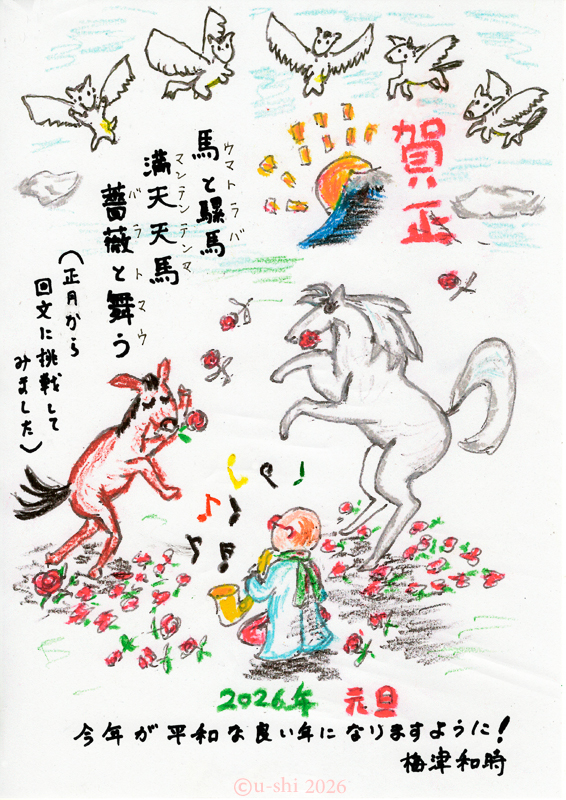 賀正
馬と騾馬
ウマトラバ
満天天馬
マンテンテンマ
薔薇と舞う
バラトマウ
(正月から
回文に挑戦して
みました)
2026年 元旦
今年が平和な良い年になりますように!
梅津和時
©u-shi 2026